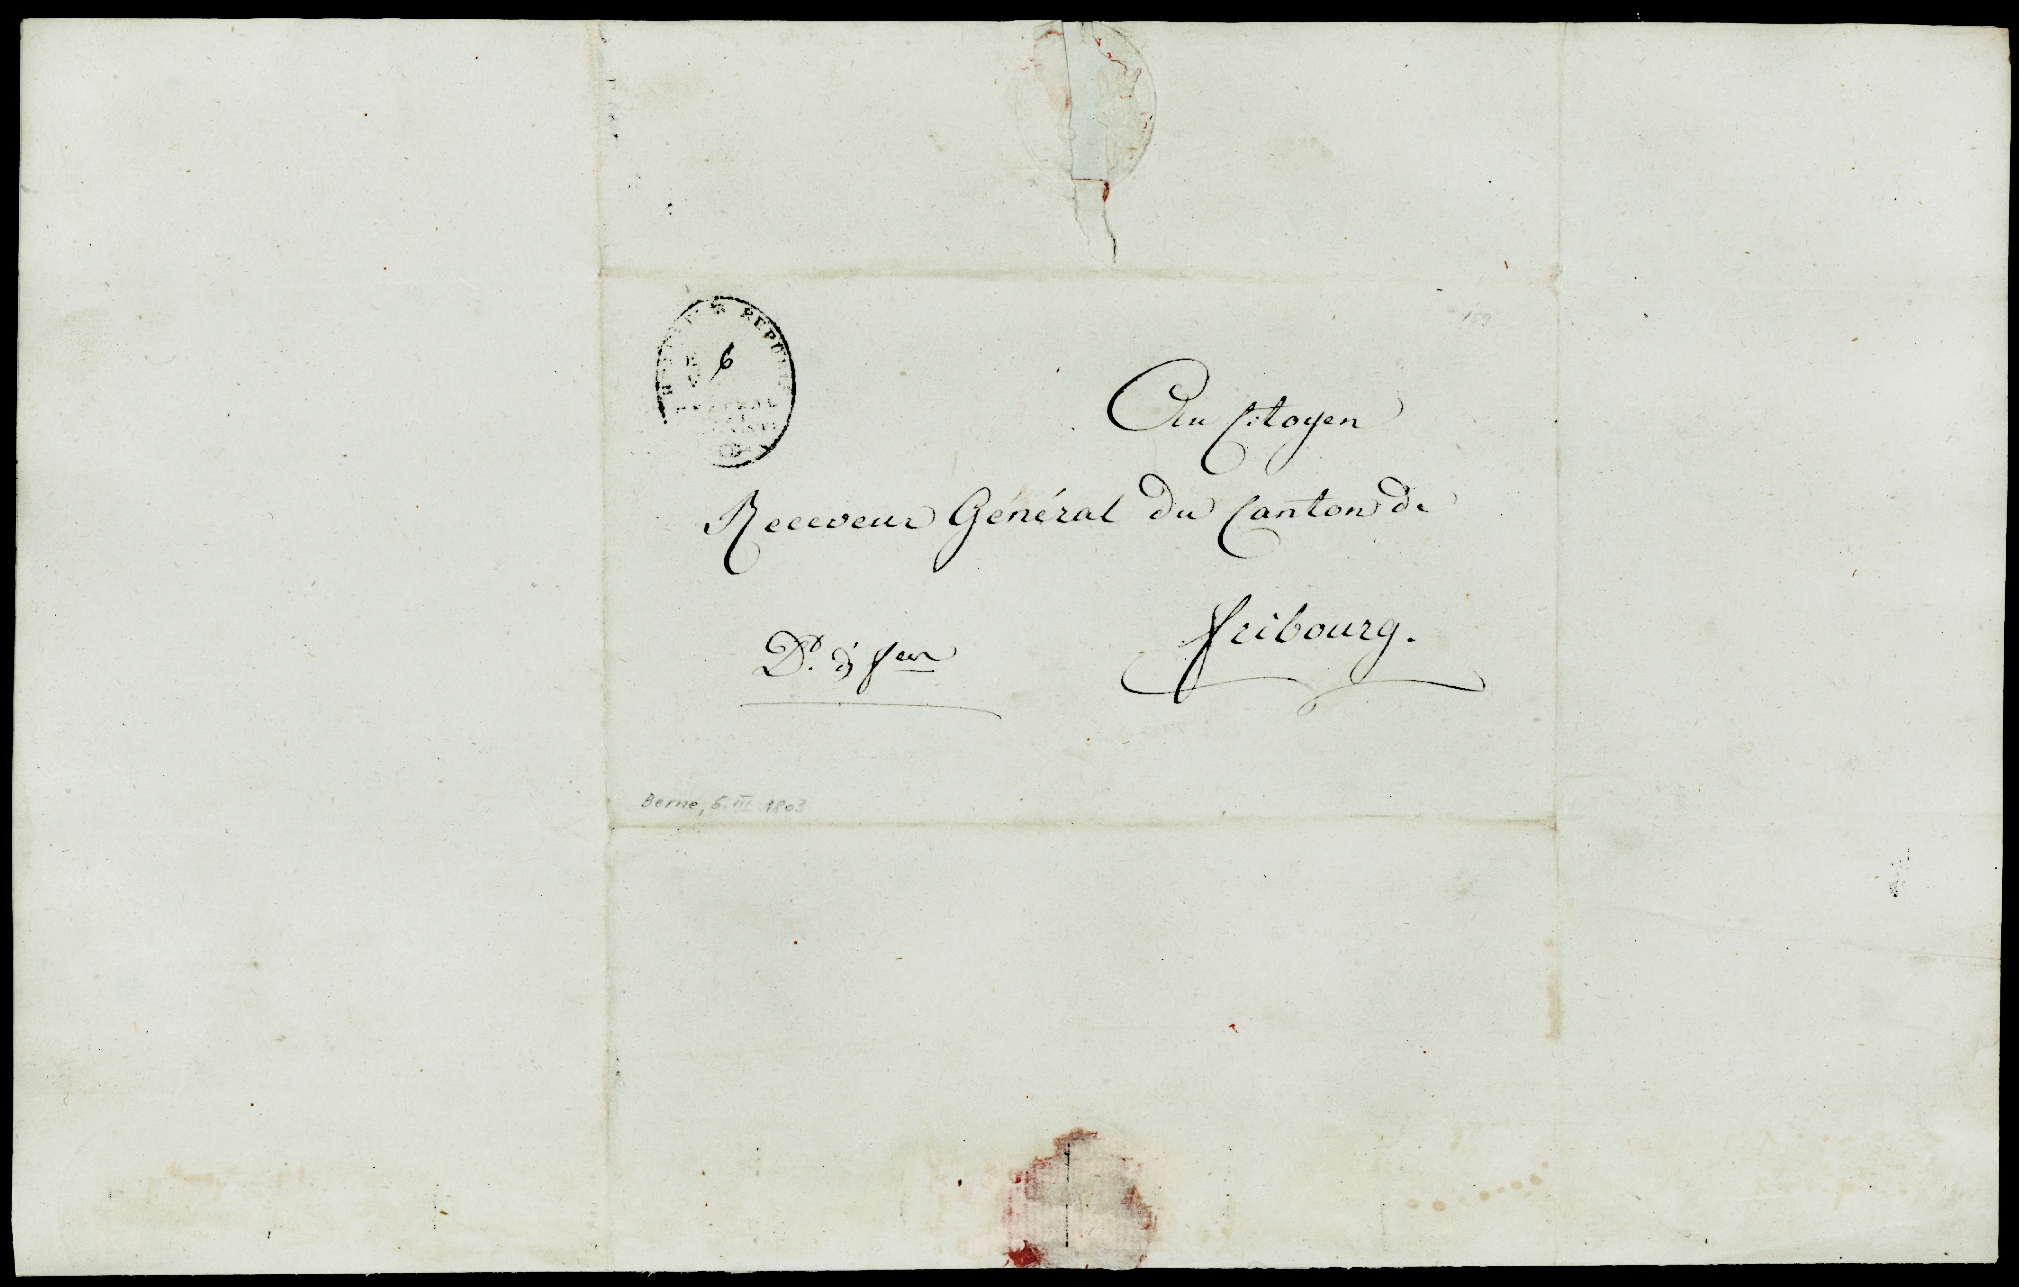 REPUB
6
159
Au Citoyen
Receveur Général du Canton de
Fribourg.
Berne, 6. III 1803